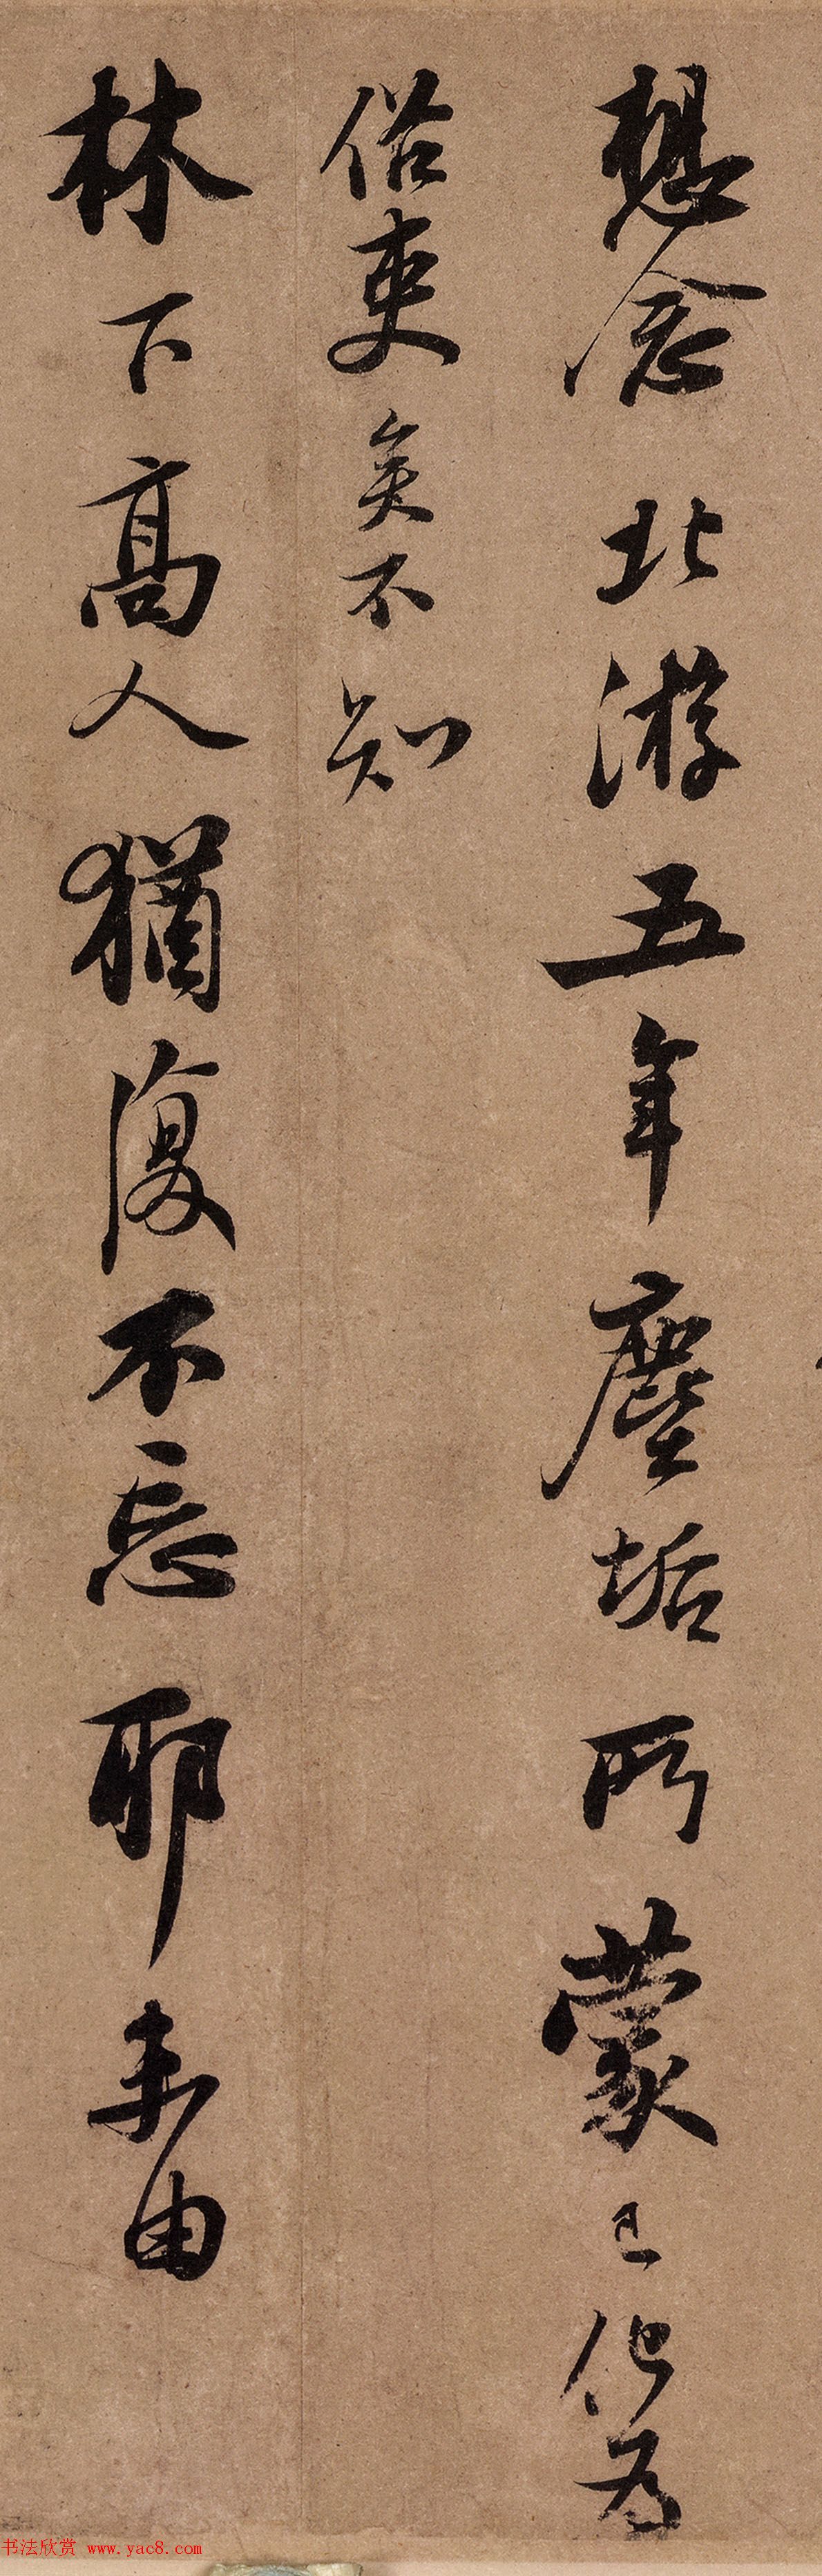 想念北游五年塵垢所蒙已化為
俗吏矣不知
林下高人猶復不忘耶未由
书法欣赏 www.yac8.com